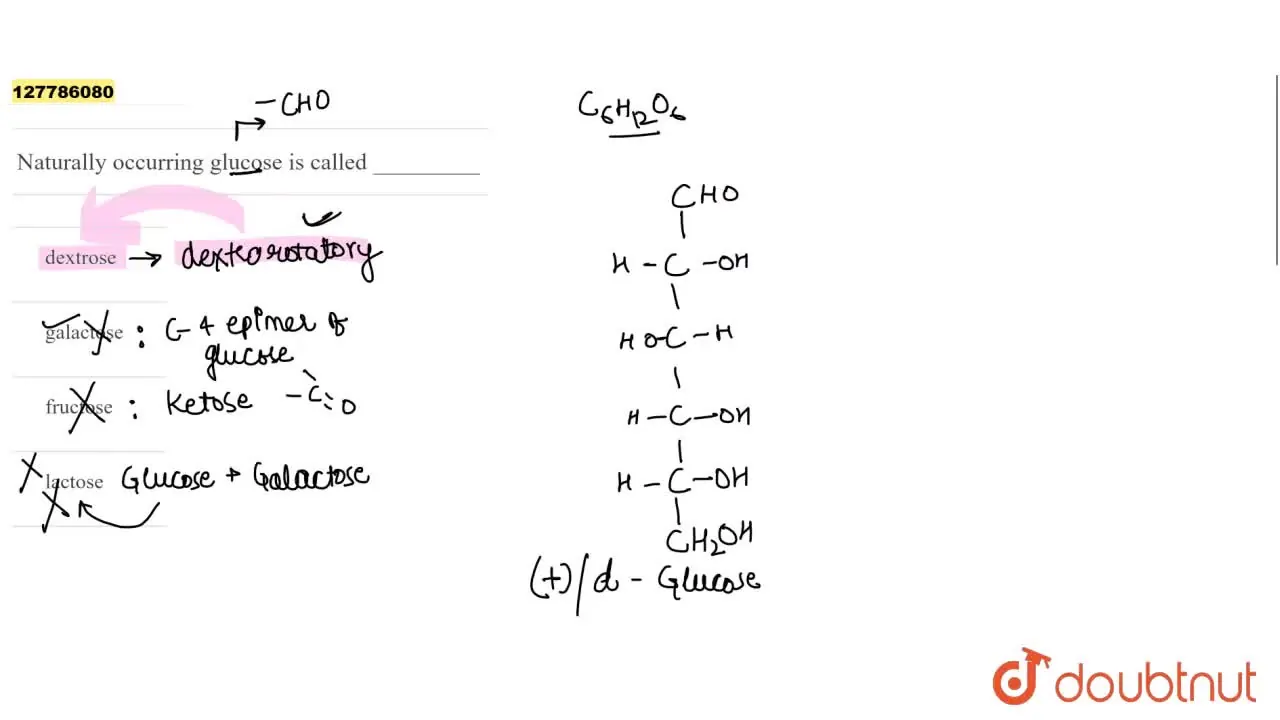 127786080
-CHO
Naturally occurring glucose is called __________
dextrose → dextorotatory
galactose : C-4 epimer of
glucose
fructose : Ketose -C=O
lactose Glucose + Galactose
C6H12O6
CHO
H-C-OH
HO-C-H
H-C-OH
H-C-OH
CH2OH
(+)/d - Glucose
doubtnut